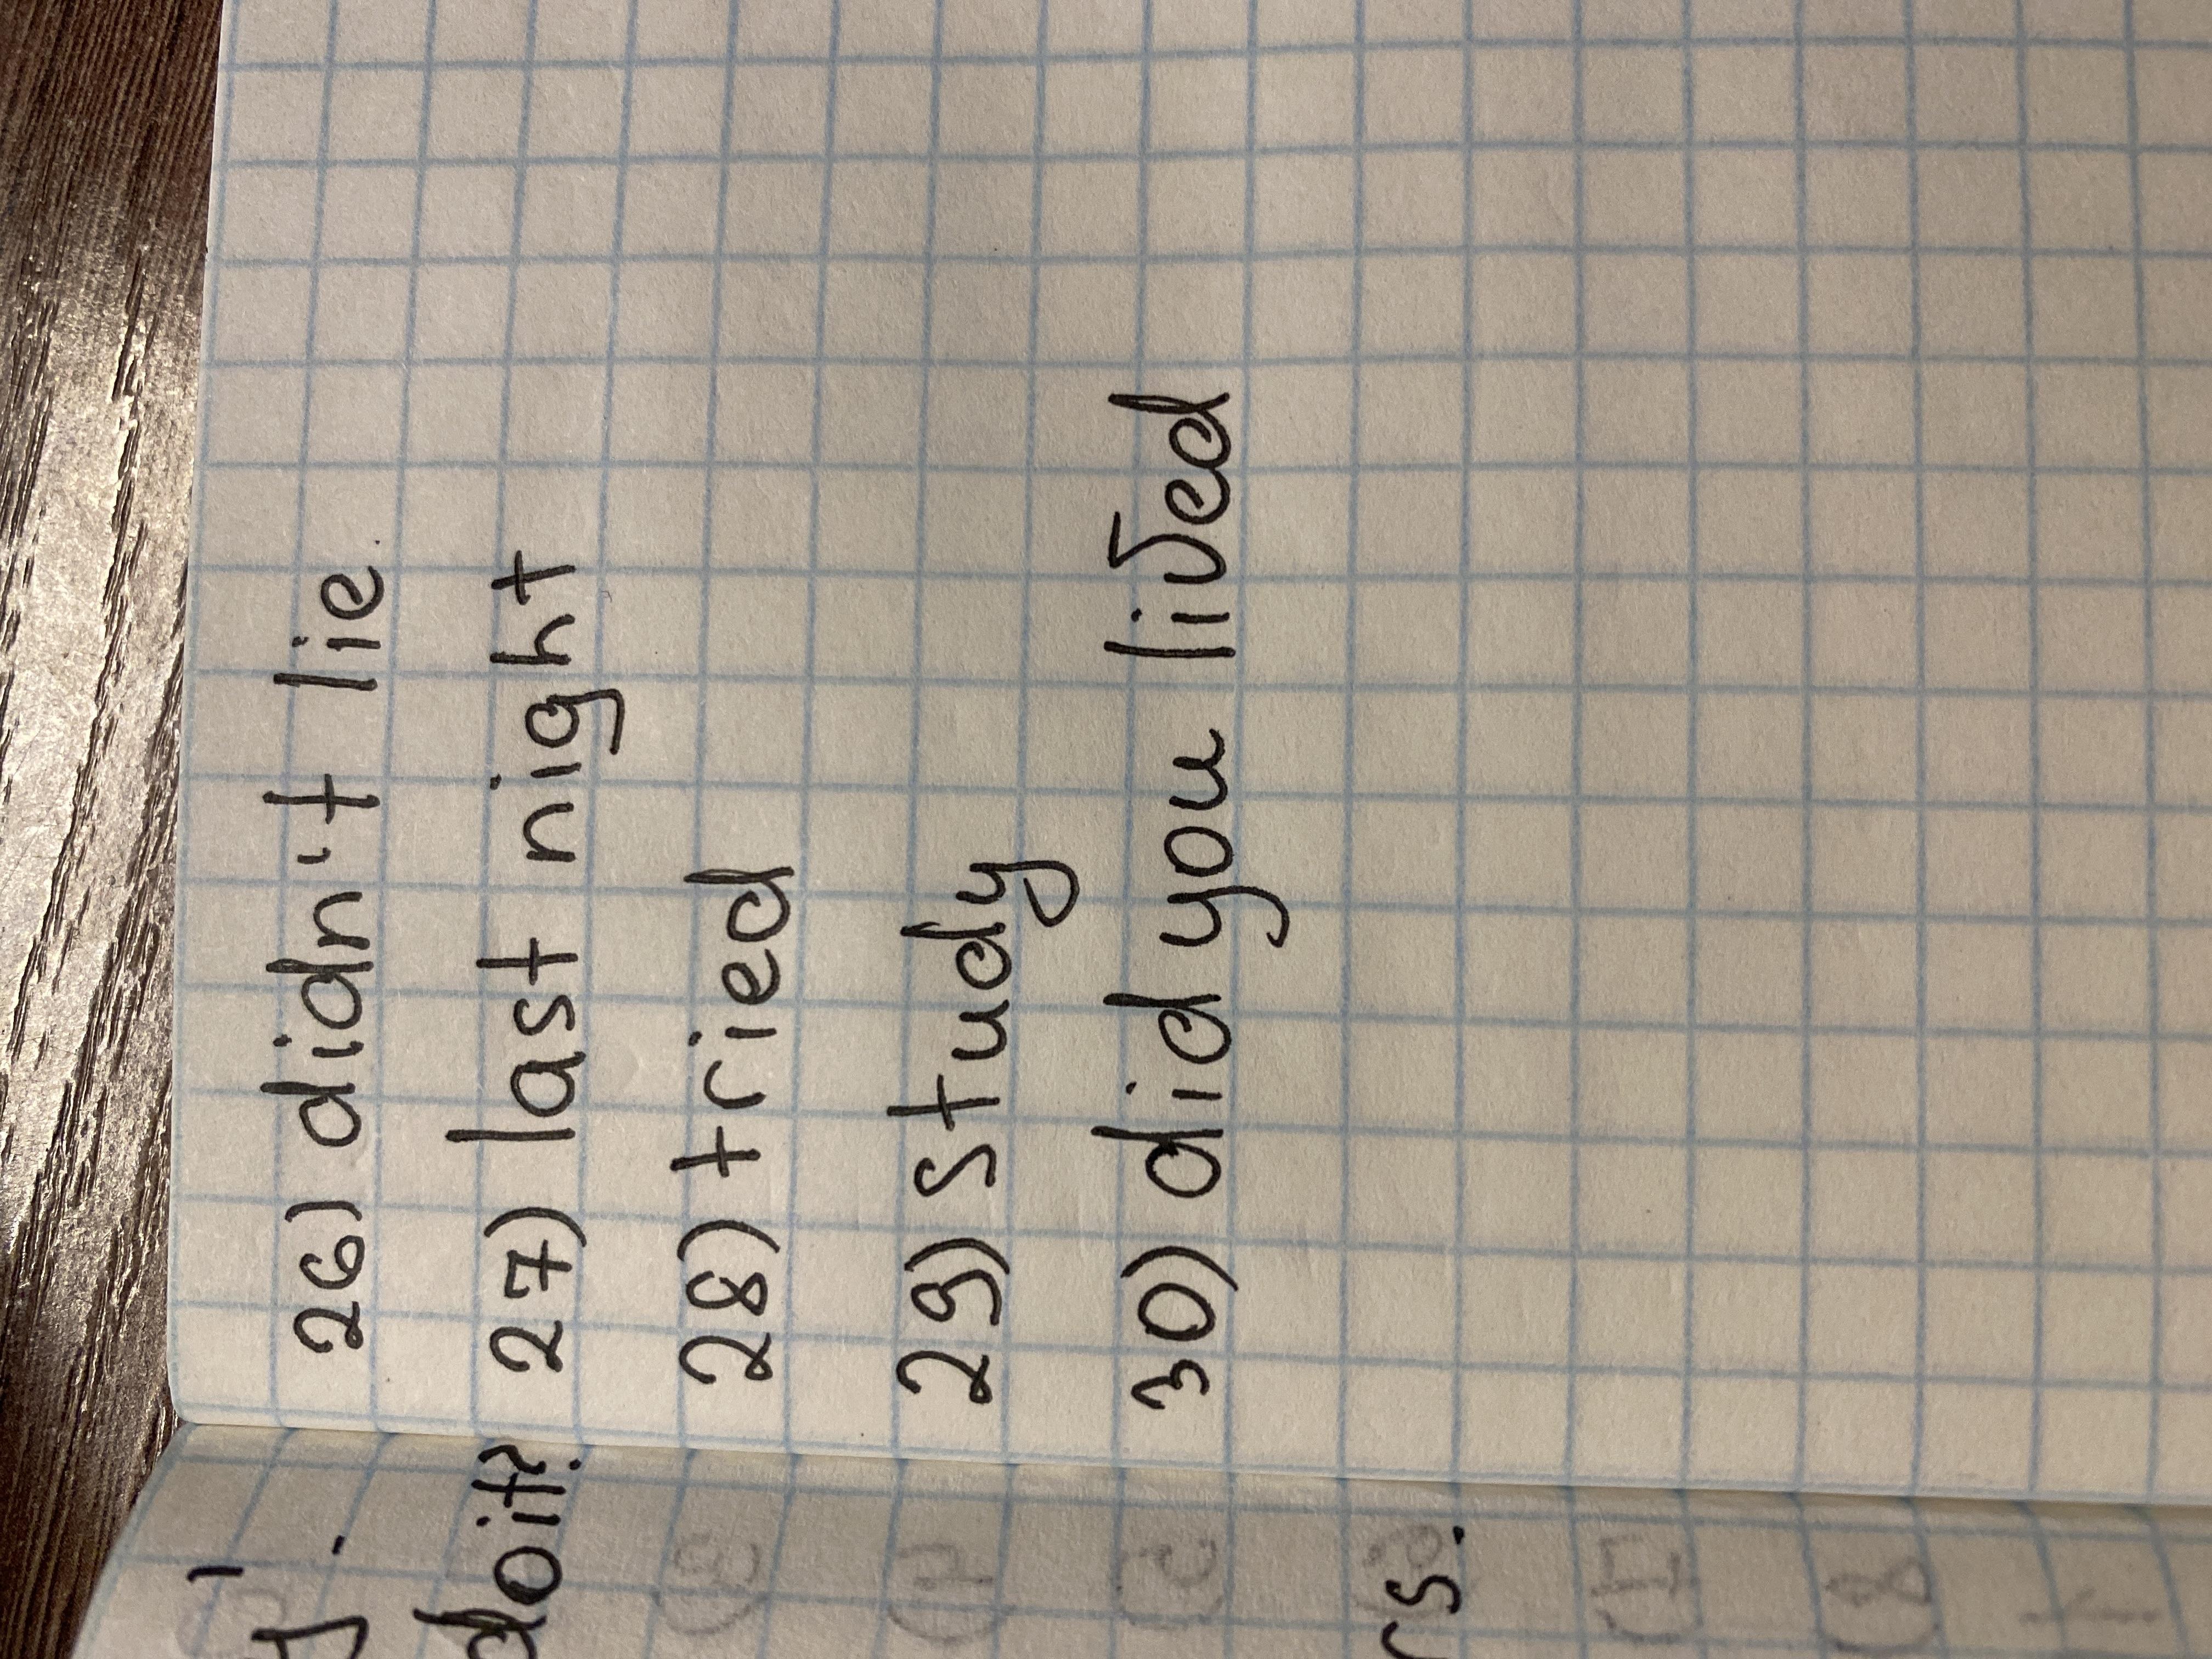 26) didn't lie
27) last night
28) tried
29) study
30) did you lived
doit?
rs.